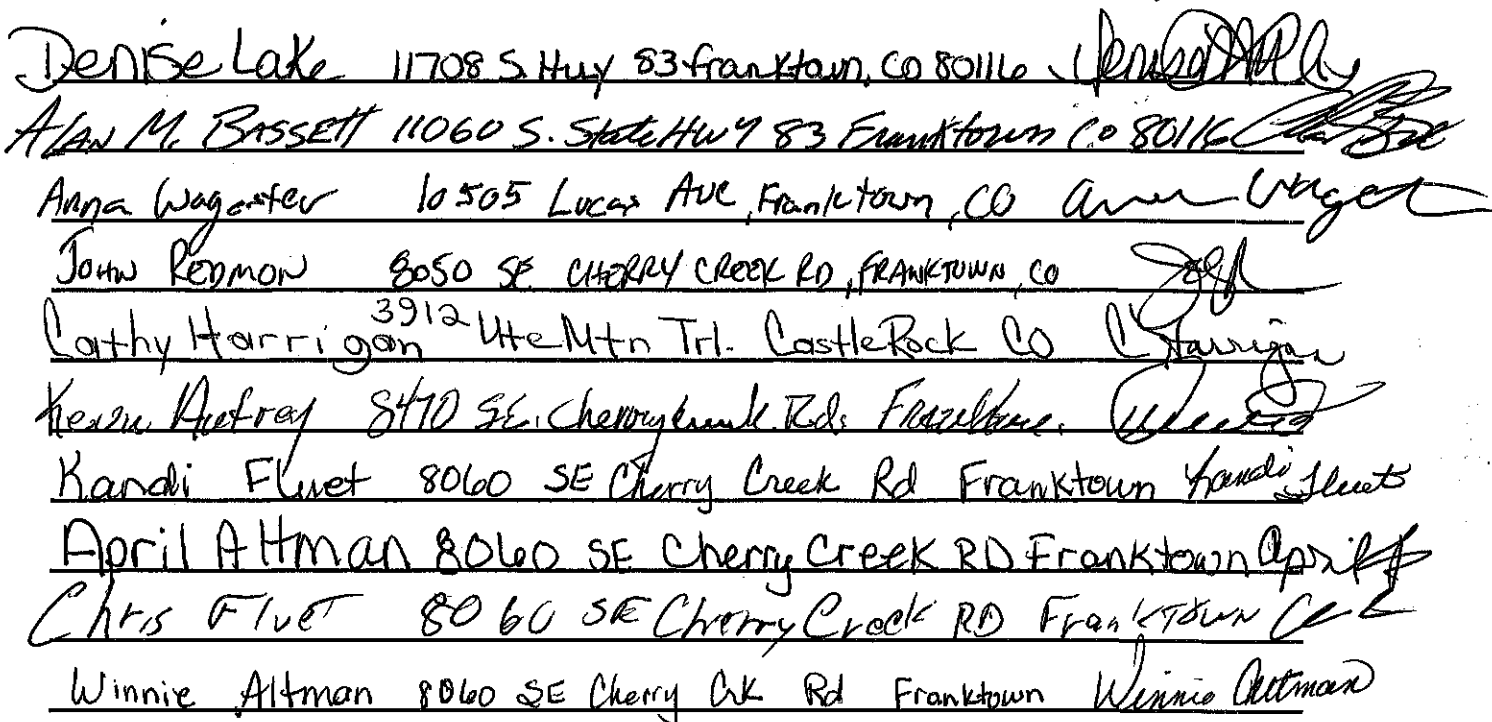 Denise Lake 11708 S. Hwy 83 franktown, CO 80116
ALAN M. BASSETT 11060 S. State HWY 83 Franktown Co 80116
Anna Wagester 10505 Lucas Ave, Franktown, CO
JOHN REDMON 8050 SE CHERRY CREEK RD, FRANKTOWN, CO
Cathy Harrigan 3912 Ute Mtn Trl. Castle Rock CO C Harrigan
8470 SE. Rd.
Kandi Fluet 8060 SE Cherry Creek Rd Franktown Kandi Fluet
April Altman 8060 SE Cherry Creek RD Franktown April
Chris Fluet 8060 SE Cherry Creek RD FrankTown
Winnie Altman 8060 SE Cherry Crk Rd Franktown Winnie Altman